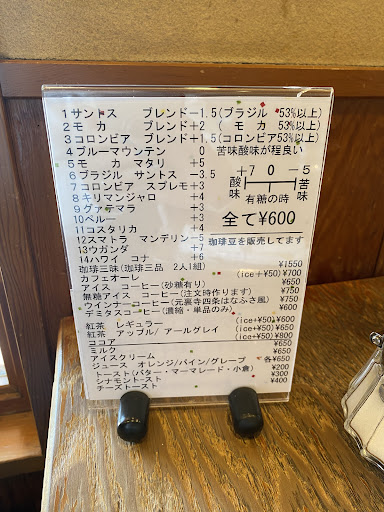 1サントス ブレンド−1.5(ブラジル 53%以上)
2モカ ブレンド+2 ( モカ 53%以上)
3コロンビア ブレンド+1.5(コロンビア53%以上)
4ブルーマウンテン 0 苦味酸味が程良い
5モカ マタリ +5
6ブラジル サントス −3.5
7コロンビア スプレモ+3
8キリマンジャロ +4
9グァテマラ +3
10ペルー +3
11コスタリカ +4
12スマトラ マンデリン−5
13ウガンダ −7
14ハワイ コナ +6
+7 0 −5
酸味 苦味
有糖の時
全て¥600
珈琲豆を販売してます
珈琲三昧(珈琲三品 2人1組) ¥1550
カフェオーレ (ice+¥50)¥700
アイス コーヒー(砂糖有り) ¥650
無糖アイス コーヒー(注文時作ります) ¥750
ウインナーコーヒー(元裏寺四条はなふさ風) ¥750
デミタスコーヒー(濃縮・単品のみ) ¥700
紅茶 レギュラー (ice+¥50)¥600
紅茶 アップル/ アールグレイ (ice+¥50)¥650
ココア (ice+¥50)¥800
ミルク ¥650
アイスクリーム ¥650
ジュース オレンジ/パイン/グレープ 各¥650
トースト(バター・マーマレード・小倉) ¥200
シナモントースト ¥300
チーズトースト ¥400